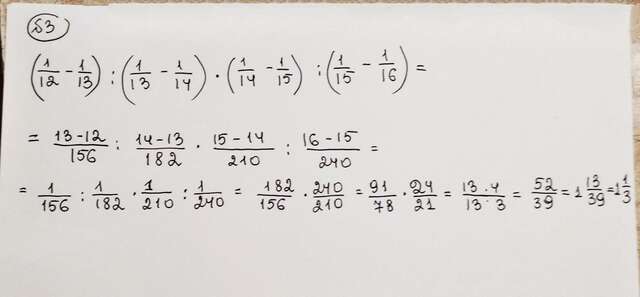 №3
(1/12 - 1/13) : (1/13 - 1/14) · (1/14 - 1/15) : (1/15 - 1/16) =
= 13-12/156 : 14-13/182 · 15-14/210 : 16-15/240 =
= 1/156 : 1/182 · 1/210 : 1/240 = 182/156 · 240/210 = 91/78 · 24/21 = 13·4/13·3 = 52/39 = 1 13/39 = 1 1/3